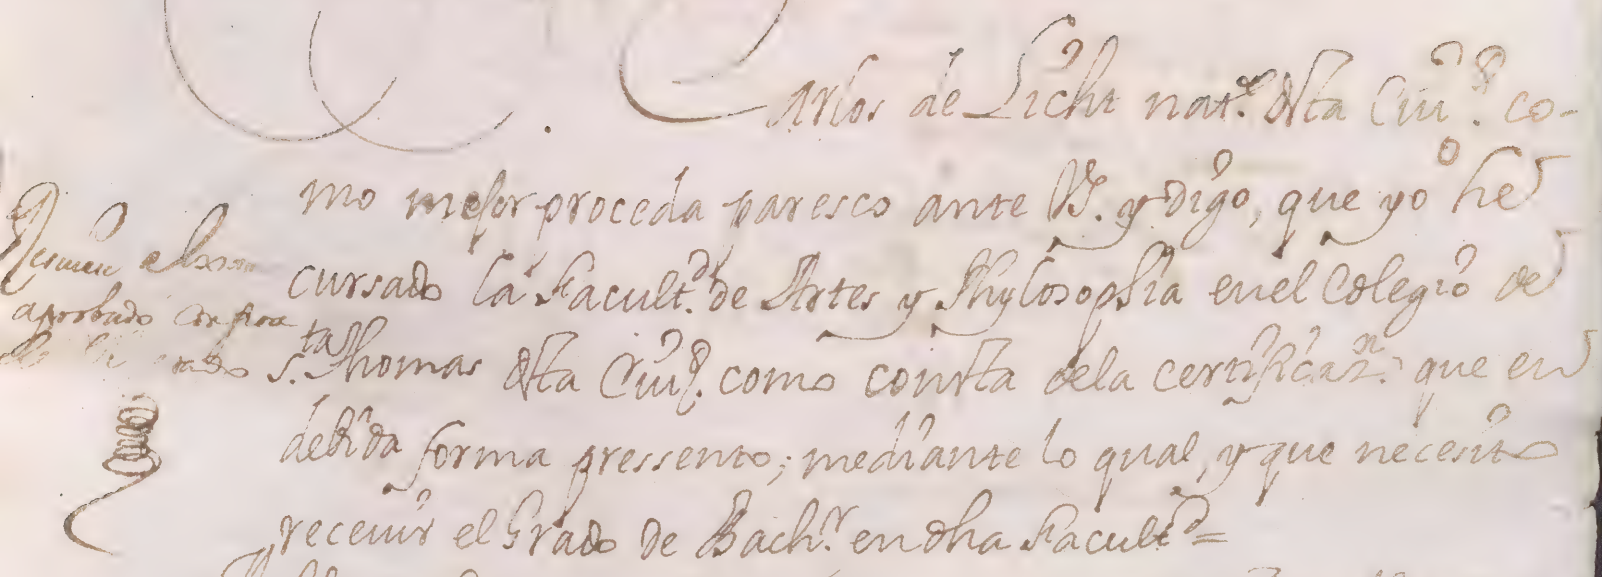 Carlos de Licht nat.l desta Ciud. co-
mo mejor proceda paresco ante VS. y digo, que yo he
cursado la Facult.d de Artes y Phylosophia en el Colegio de
s.to Thomas desta Ciud. como consta de la certificaz.n que en
debida forma pressento; mediante lo qual, y que necesito
recevir el Grado de Bach.r en dha Facult.d =
aprobado